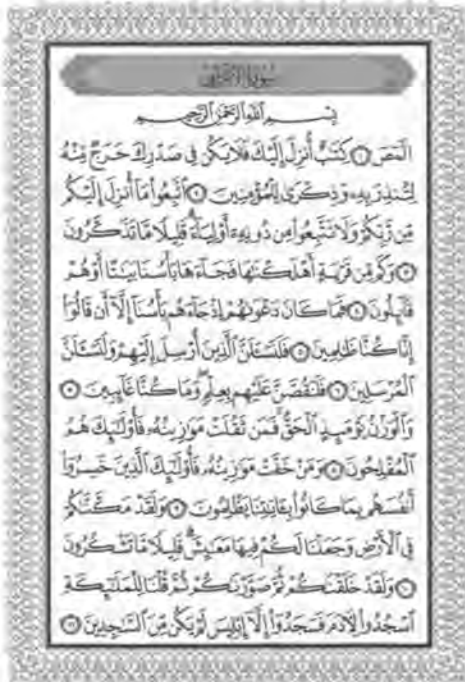 سُورَةُ الْأَعْرَافِ
بِسْمِ اللَّهِ الرَّحْمَٰنِ الرَّحِيمِ
الٓمٓصٓ ١ كِتَٰبٌ أُنزِلَ إِلَيْكَ فَلَا يَكُن فِى صَدْرِكَ حَرَجٌ مِّنْهُ
لِتُنذِرَ بِهِۦ وَذِكْرَىٰ لِلْمُؤْمِنِينَ ٢ ٱتَّبِعُوا۟ مَآ أُنزِلَ إِلَيْكُم
مِّن رَّبِّكُمْ وَلَا تَتَّبِعُوا۟ مِن دُونِهِۦٓ أَوْلِيَآءَ ۗ قَلِيلًا مَّا تَذَكَّرُونَ
٣ وَكَم مِّن قَرْيَةٍ أَهْلَكْنَٰهَا فَجَآءَهَا بَأْسُنَا بَيَٰتًا أَوْ هُمْ
قَآئِلُونَ ٤ فَمَا كَانَ دَعْوَىٰهُمْ إِذْ جَآءَهُم بَأْسُنَآ إِلَّآ أَن قَالُوٓا۟
إِنَّا كُنَّا ظَٰلِمِينَ ٥ فَلَنَسْـَٔلَنَّ ٱلَّذِينَ أُرْسِلَ إِلَيْهِمْ وَلَنَسْـَٔلَنَّ
ٱلْمُرْسَلِينَ ٦ فَلَنَقُصَّنَّ عَلَيْهِم بِعِلْمٍ ۖ وَمَا كُنَّا غَآئِبِينَ ٧
وَٱلْوَزْنُ يَوْمَئِذٍ ٱلْحَقُّ ۚ فَمَن ثَقُلَتْ مَوَٰزِينُهُۥ فَأُو۟لَٰٓئِكَ هُمُ
ٱلْمُفْلِحُونَ ٨ وَمَنْ خَفَّتْ مَوَٰزِينُهُۥ فَأُو۟لَٰٓئِكَ ٱلَّذِينَ خَسِرُوٓا۟
أَنفُسَهُم بِمَا كَانُوا۟ بِـَٔايَٰتِنَا يَظْلِمُونَ ٩ وَلَقَدْ مَكَّنَّٰكُمْ
فِى ٱلْأَرْضِ وَجَعَلْنَا لَكُمْ فِيهَا مَعَٰيِشَ ۗ قَلِيلًا مَّا تَشْكُرُونَ
١٠ وَلَقَدْ خَلَقْنَٰكُمْ ثُمَّ صَوَّرْنَٰكُمْ ثُمَّ قُلْنَا لِلْمَلَٰٓئِكَةِ
ٱسْجُدُوا۟ لِـَٔادَمَ فَسَجَدُوٓا۟ إِلَّآ إِبْلِيسَ لَمْ يَكُن مِّنَ ٱلسَّٰجِدِينَ ١١